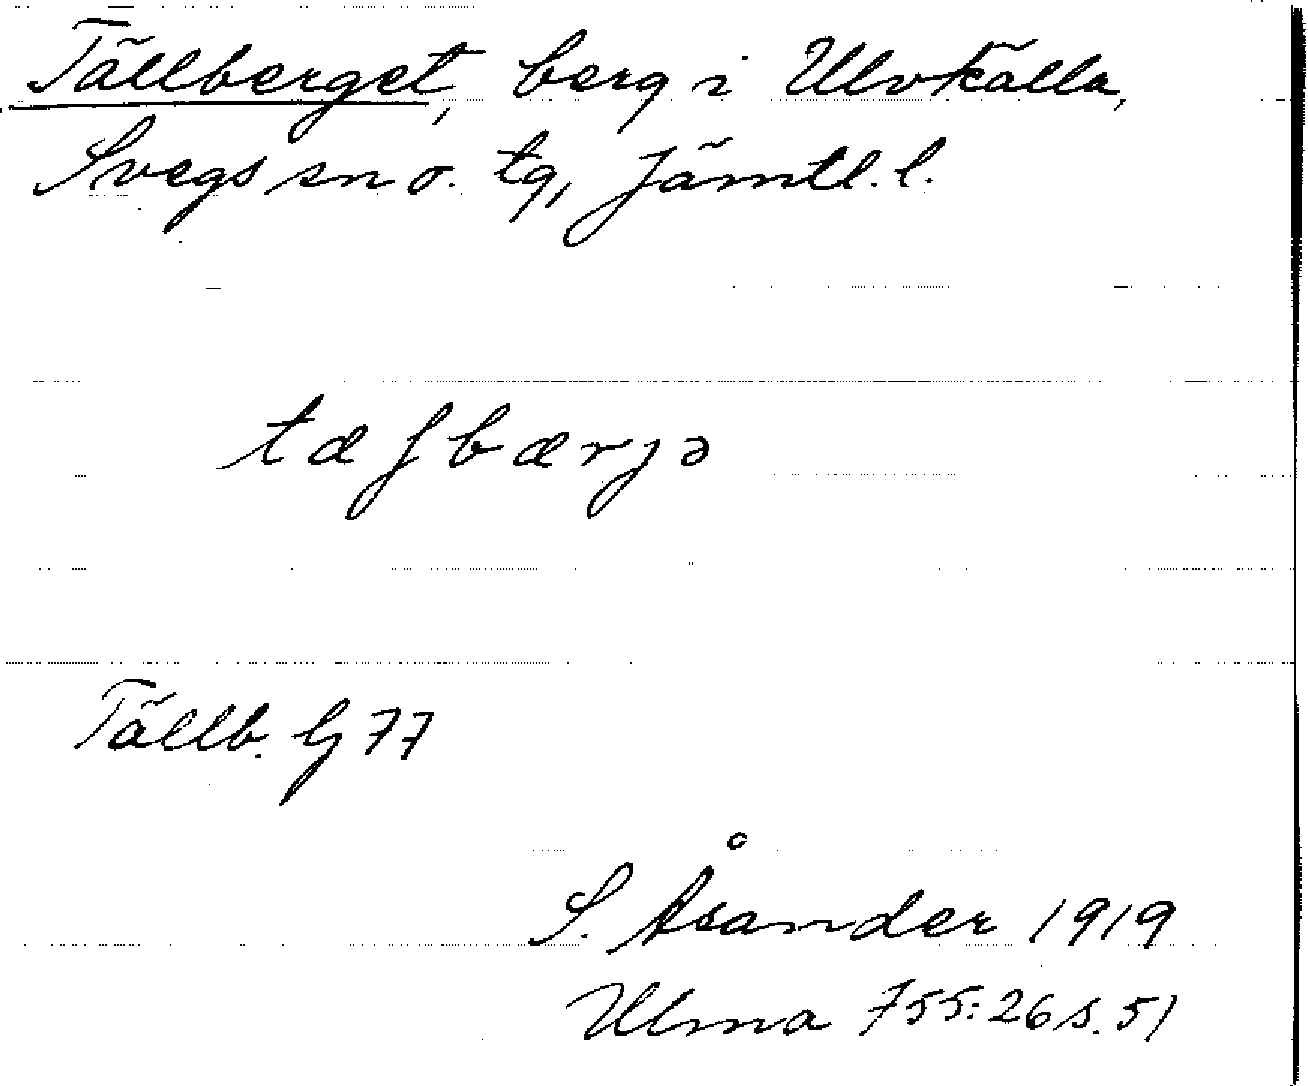 Tällberget, berg i Ulvkälla,
Svegs sn o. tg, Jämtl. l.
tæʃbærjə
Tällb. G 77
S. Åsander 1919
Ulma 755:26 s. 51